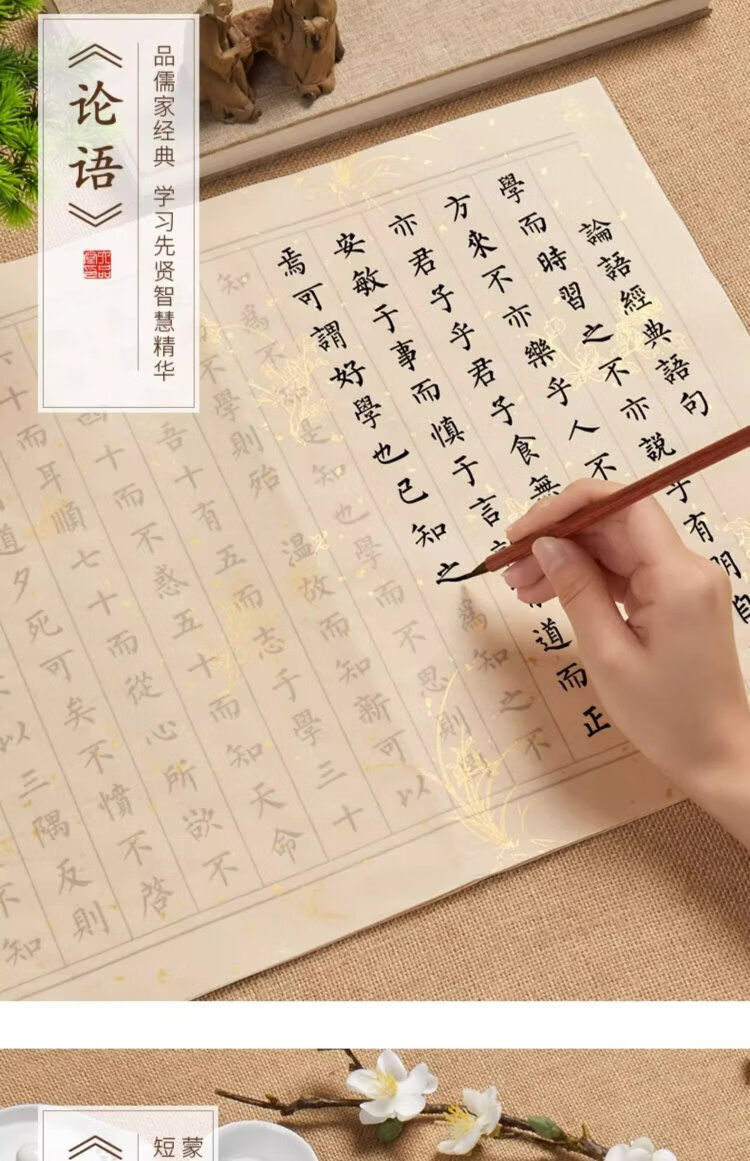 《论语》
品儒家经典 学习先贤智慧精华
論語經典語句
學而時習之不亦說乎有朋自
方來不亦樂乎人不
亦君子乎君子食無
安敏于事而慎于言 道而正
焉可謂好學也已知之爲知之不
知爲不知是知也學而不思則罔
不學則殆 温故而知新可以
吾十有五而志于學三十
四十而不惑五十而知天命
六十而耳順七十而從心所欲不
道夕死可矣不憤不啓
以三隅反則
不知
《
蒙
短